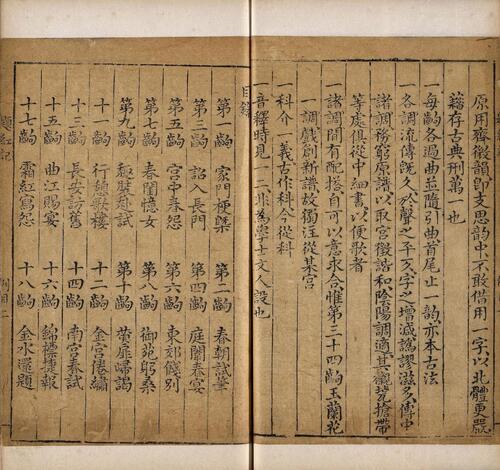 原用齊微韻即支思韻中不敢借用一字以北體更嚴
藉存古典刑第一也
每齣各過曲並隨引曲首尾止一韻亦本古法
一各調流傳既久於聲之平仄字之增減譌謬滋多傳中
諸調務窮原譜以取宮徵諧和陰陽調適其襯搶帶
等處俱從中細書以便歌者
一諸調間有配搭自可以意求合惟第三十四齣玉蘭花
一調戲創新譜故獨注從某宮
一科介一義古作科今從科
一音釋時見一二非為學士文人設也
目錄
第一齣 家門梗槩 第二齣 春朝試筆
第三齣 詔入長門 第四齣 庭闈春宴
第五齣 宮中春怨 第六齣 東郊餞別
第七齣 春閨憶女 第八齣 御苑躬桑
第九齣 趣駕赴試 第十齣 黃扉歸謁
十一齣 行歌樓 十二齣 金宮倦繡
十三齣 長安訪舊 十四齣 南宮奏試
十五齣 曲江賜宴 十六齣 錦標捷報
十七齣 霜紅寫怨 十八齣 金水還題
題紅記 例目 二